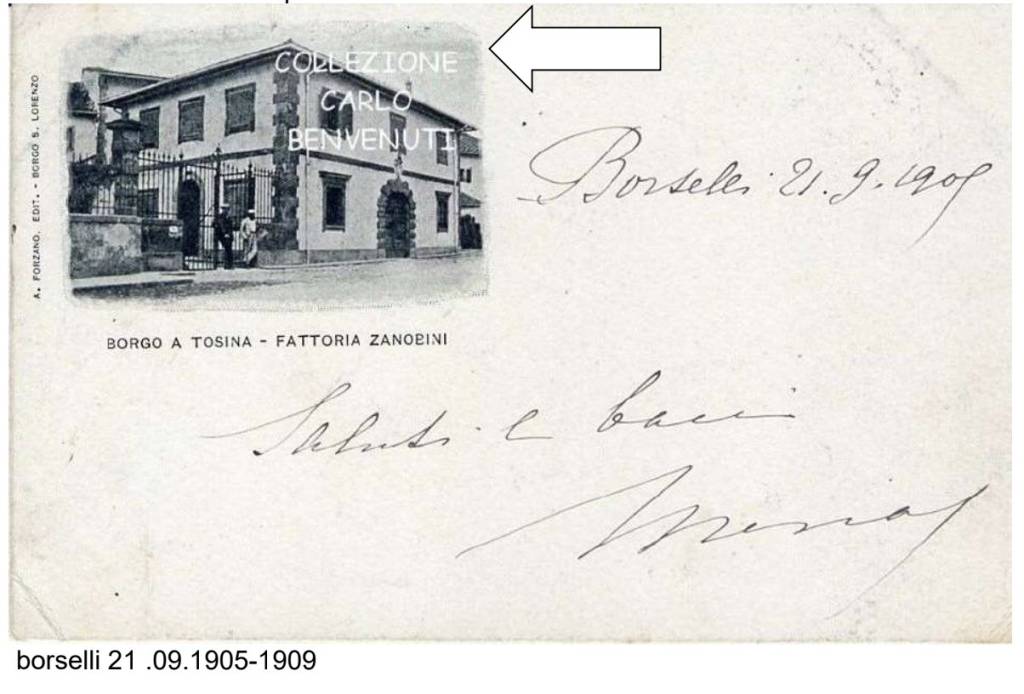 COLLEZIONE
CARLO
BENVENUTI
A. FORZANO. EDIT. - BORGO S. LORENZO
Borselli 21.9.190
BORGO A TOSINA - FATTORIA ZANOBINI
Saluti e baci
borselli 21 .09.1905-1909